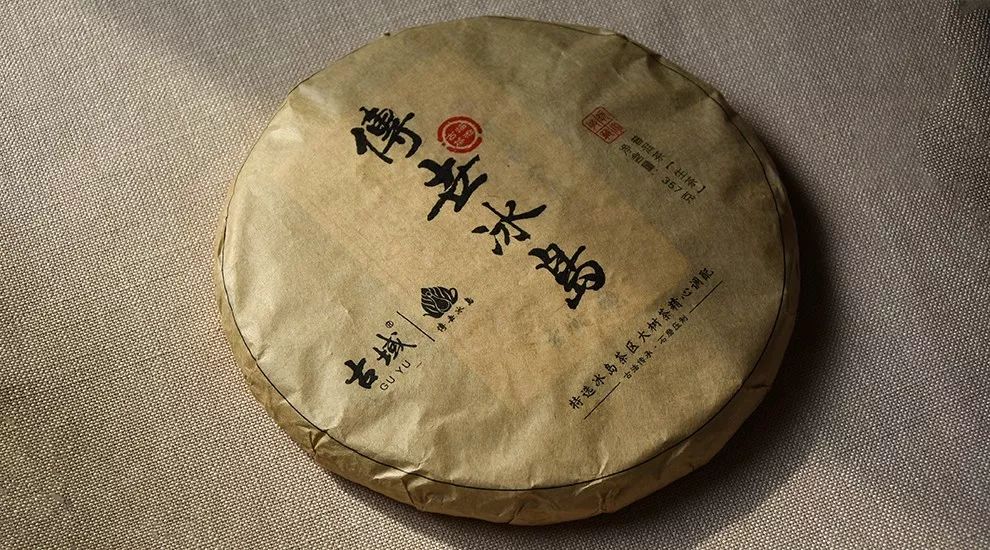 傳世冰島
普洱茶【生茶】
净含量：357克
古域®
GU YU
傳世冰島
特选冰岛茶区大树茶精心调配
古法传承，石磨压制